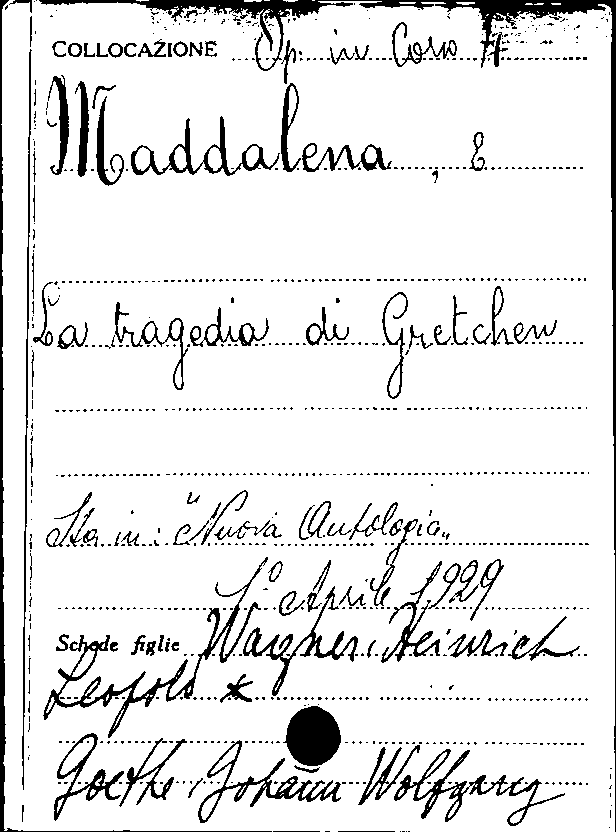 COLLOCAZIONE Op. in Corso H
Maddalena, E
La tragedia di Gretchen
Sta in: "Nuova Antologia"
1º Aprile 1929
Schede figlie Wagner, Heinrich
Leopold *
Goethe, Johann Wolfgang